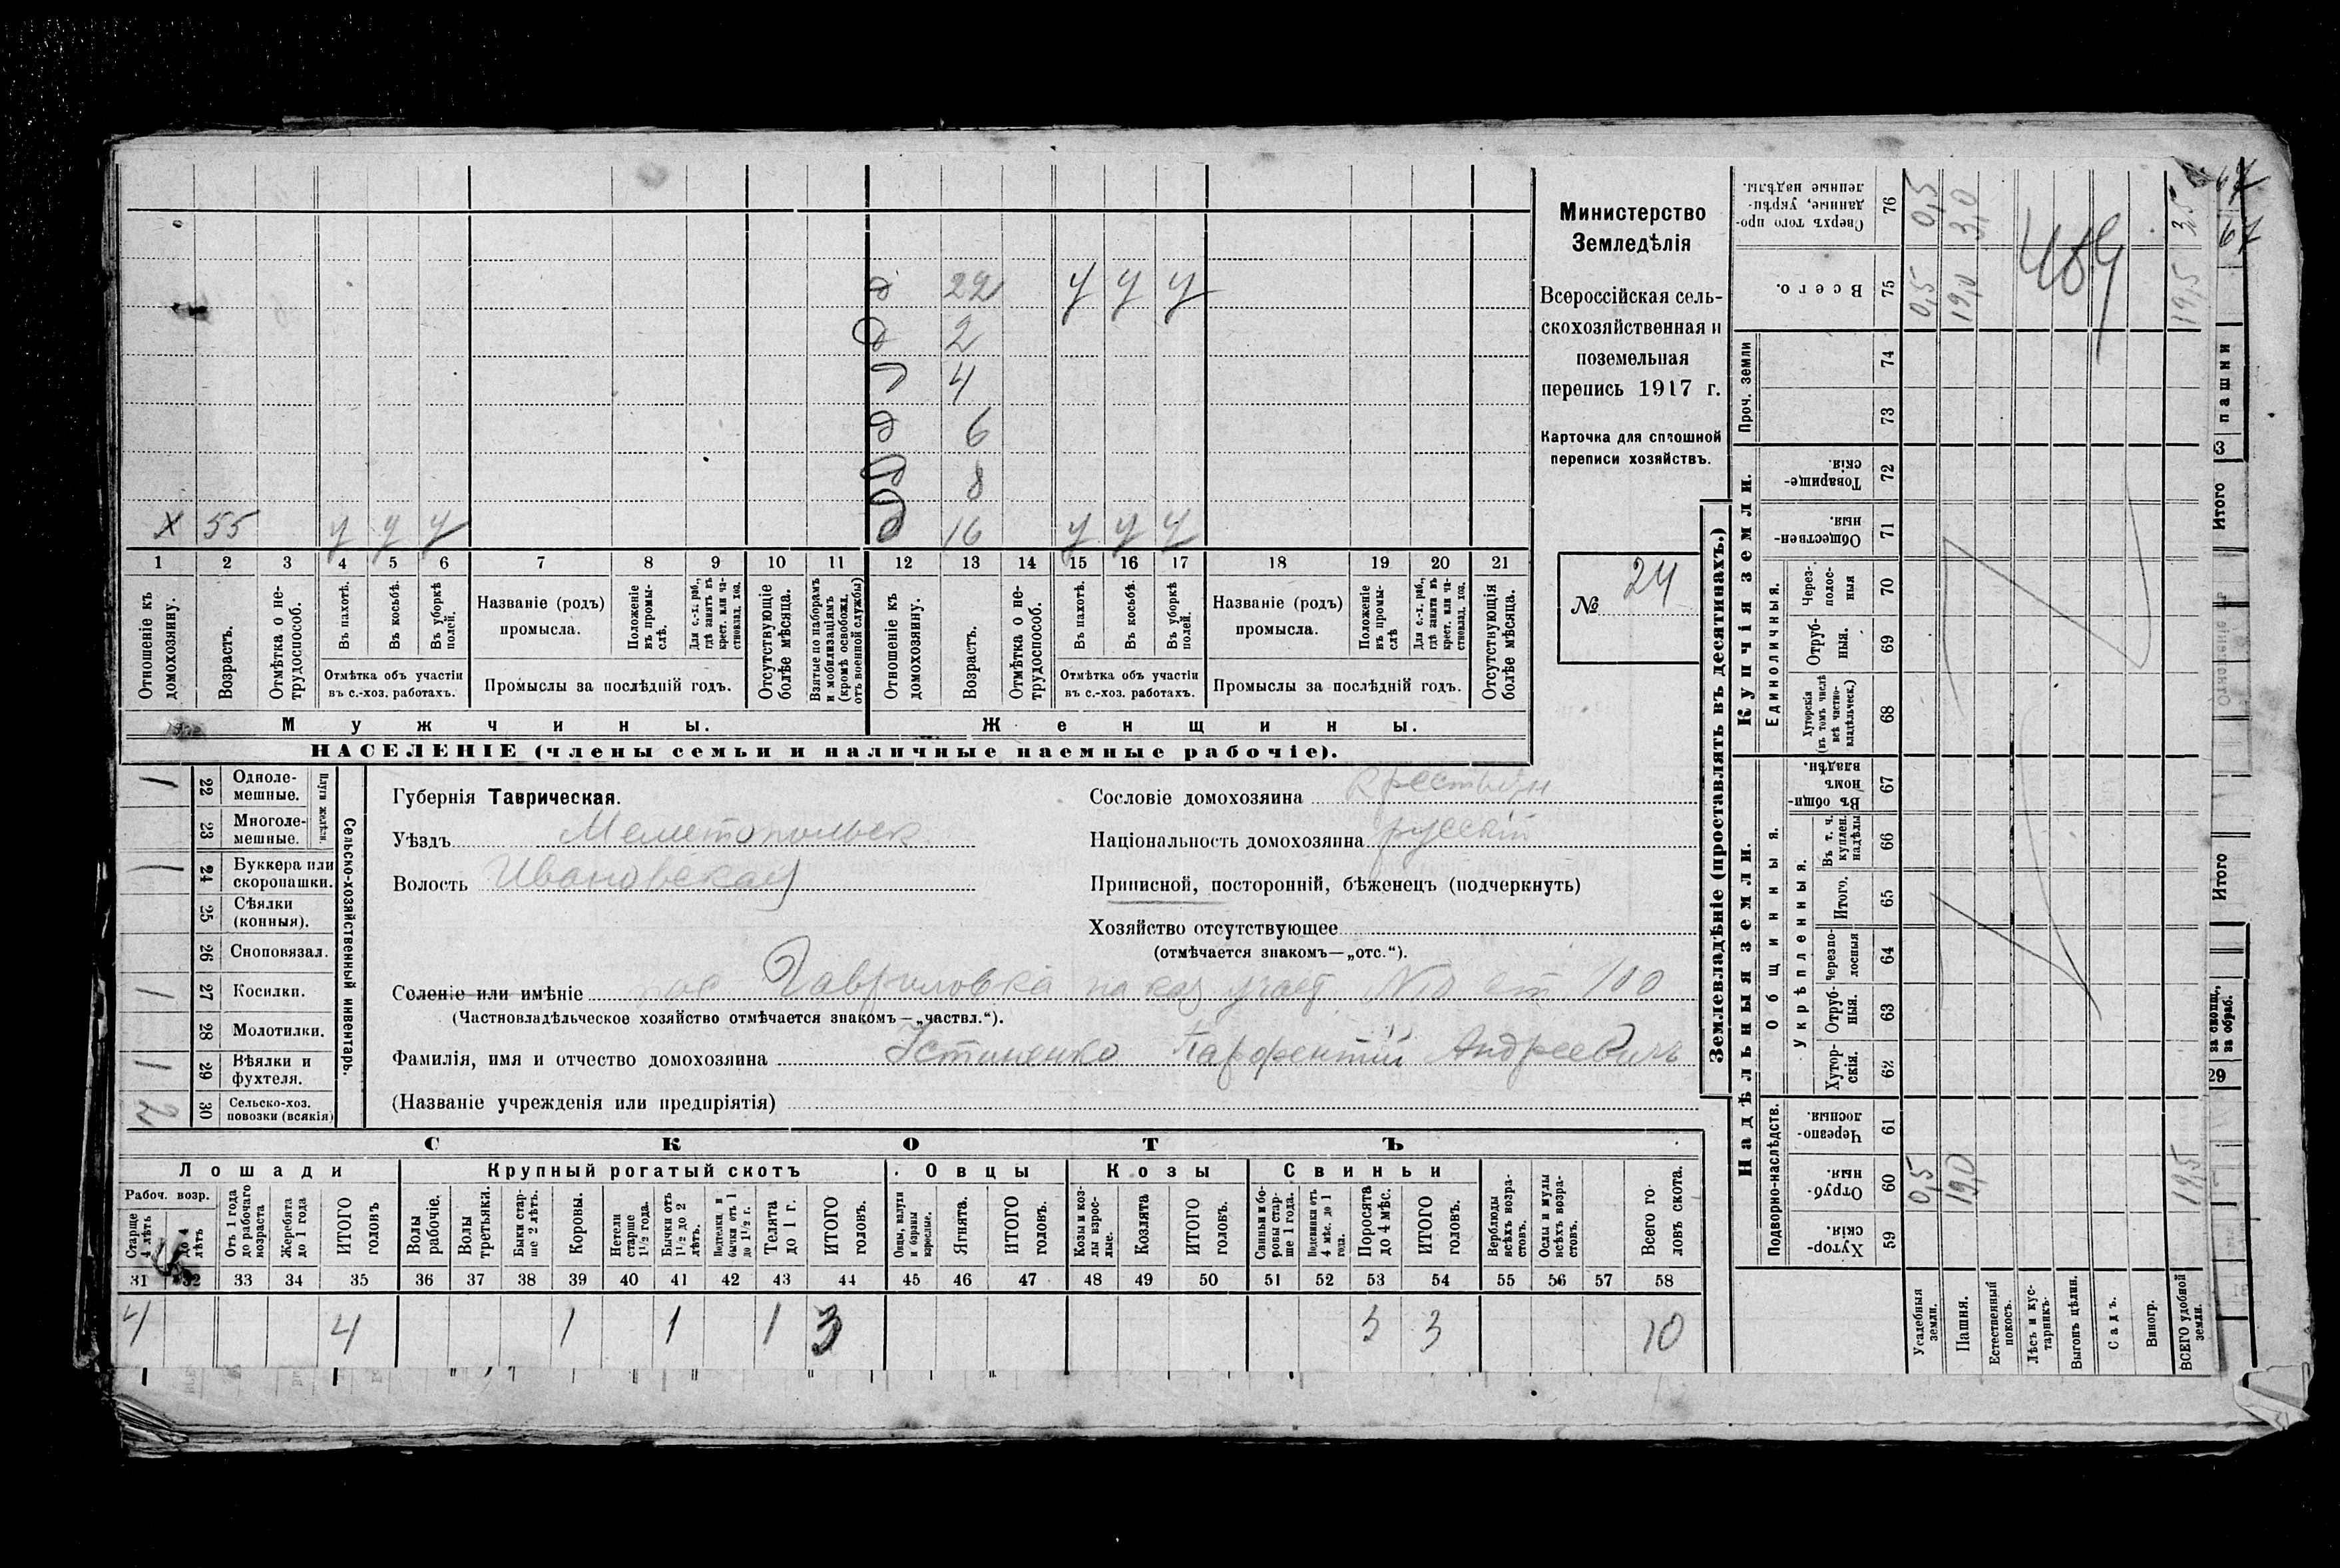 Министерство
Земледѣлія
Всероссійская сель-
скохозяйственная и
поземельная
перепись 1917 г.
Карточка для сплошной
переписи хозяйствъ.
№ 24
22 у у у
2
4
6
8
х 55 у у у
16 у у у
1 2 3 4 5 6 7 8 9 10 11 12 13 14 15 16 17 18 19 20 21
Отношеніе къ домохозяину.
Возрастъ.
Отмѣтка о не-трудоспособ.
Въ пахотѣ.
Въ косьбѣ.
Въ уборкѣ полей.
Отмѣтка объ участіи
въ с.-хоз. работахъ.
Названіе (родъ)
промысла.
Положеніе въ промы-слѣ.
Для с.-х. раб., гдѣ занятъ въ крест. или ча-стновлад. хоз.
Промыслы за послѣдній годъ.
Отсутствующіе болѣе мѣсяца.
Взятые по наборамъ и мобилизаціямъ (кромѣ освобожд. отъ военной службы)
Отношеніе къ домохозяину.
Возрастъ.
Отмѣтка о не-трудоспособ.
Въ пахотѣ.
Въ косьбѣ.
Въ уборкѣ полей.
Отмѣтка объ участіи
въ с.-хоз. работахъ.
Названіе (родъ)
промысла.
Положеніе въ промы-слѣ
Для с.-х. раб., гдѣ занята въ крест. или ча-стновлад. хоз.
Промыслы за послѣдній годъ.
Отсутствующія болѣе мѣсяца.
Мужчины.
Женщины.
НАСЕЛЕНІЕ (члены семьи и наличные наемные рабочіе).
Сельско-хозяйственный инвентарь.
1 22 Одноле-мешные.
23 Многоле-мешные.
1 24 Буккера или скоропашки.
25 Сѣялки (конныя).
26 Сноповязал.
1 27 Косилки.
28 Молотилки.
1 29 Вѣялки и фухтеля.
2 30 Сельско-хоз. повозки (всякія)
Губернія Таврическая.
Уѣздъ Мелитопольск
Волость Ивановская
Сословіе домохозяина Крестьян
Національность домохозяина русскій
Приписной, посторонній, бѣженецъ (подчеркнуть)
Хозяйство отсутствующее
(отмѣчается знакомъ—„отс.“).
Селеніе или имѣніе пос Гавриловка на каз участ 100
(Частновладѣльческое хозяйство отмѣчается знакомъ—„частвл.“).
Фамилія, имя и отчество домохозяина Устименко Парфентій Андреевичъ
(Названіе учрежденія или предпріятія)
СКОТЪ
Лошади
Крупный рогатый скотъ
Овцы
Козы
Свиньи
Рабоч. возр.
Старше 4 лѣтъ
до 4 лѣтъ
Отъ 1 года до рабочаго возраста
Жеребята до 1 года
ИТОГО головъ
Волы рабочіе.
Волы третьяки.
Быки стар-ше 2 лѣтъ.
Коровы.
Нетели старше 1½ года.
Бычки отъ 1½ до 2 лѣтъ.
Подтелки, и бычки отъ 1 до 1½ г.
Телята до 1 г.
ИТОГО головъ.
Овцы, валухи и бараны взрослые.
Ягнята.
ИТОГО головъ.
Козы и коз-лы взрос-лые.
Козлята
ИТОГО головъ.
Свиньи и бо-ровы стар-ше 1 года.
Подсвинки отъ 4 мѣс. до 1 года.
Поросята до 4 мѣс.
ИТОГО головъ.
Верблюды всѣхъ возра-стовъ.
Ослы и мулы всѣхъ возра-стовъ.
Всего го-ловъ скота.
31 32 33 34 35 36 37 38 39 40 41 42 43 44 45 46 47 48 49 50 51 52 53 54 55 56 57 58
4 4 1 1 1 3 3 3 10
Землевладѣніе (проставлять въ десятинахъ.)
Надѣльныя земли.
Купчія земли.
Подворно-наслѣдств.
Общинныя.
Укрѣпленныя.
Единоличныя.
Проч. земли
Сверхъ того про-данные, укрѣп-ленные надѣлы. 76
Всего. 75
74
73
Товарище-скія. 72
Обществен-ныя. 71
Через-полос-ныя 70
Отруб-ныя. 69
Хуторскія (въ томъ числѣ всѣ частно-владѣльческ.) 68
Въ общин-номъ владѣн. 67
Въ т. ч. куплен. надѣлы 66
Итого. 65
Черезпо-лосныя 64
Отруб-ныя. 63
Хутор-скія. 62
Черезпо-лосныя 61
Отруб-ныя. 60
Хутор-скія 59
Усадебныя земли. 0,5 0,5 0,5
Пашня. 19,0 19,0 3,0
Естественный покосъ.
Лѣсъ и кус-тарникъ.
Выгонъ цѣлин.
Садъ.
Виногр.
ВСЕГО удобной земли. 19,5 19,5 3,5
489
67
67
пашни
Итого
Итого
29